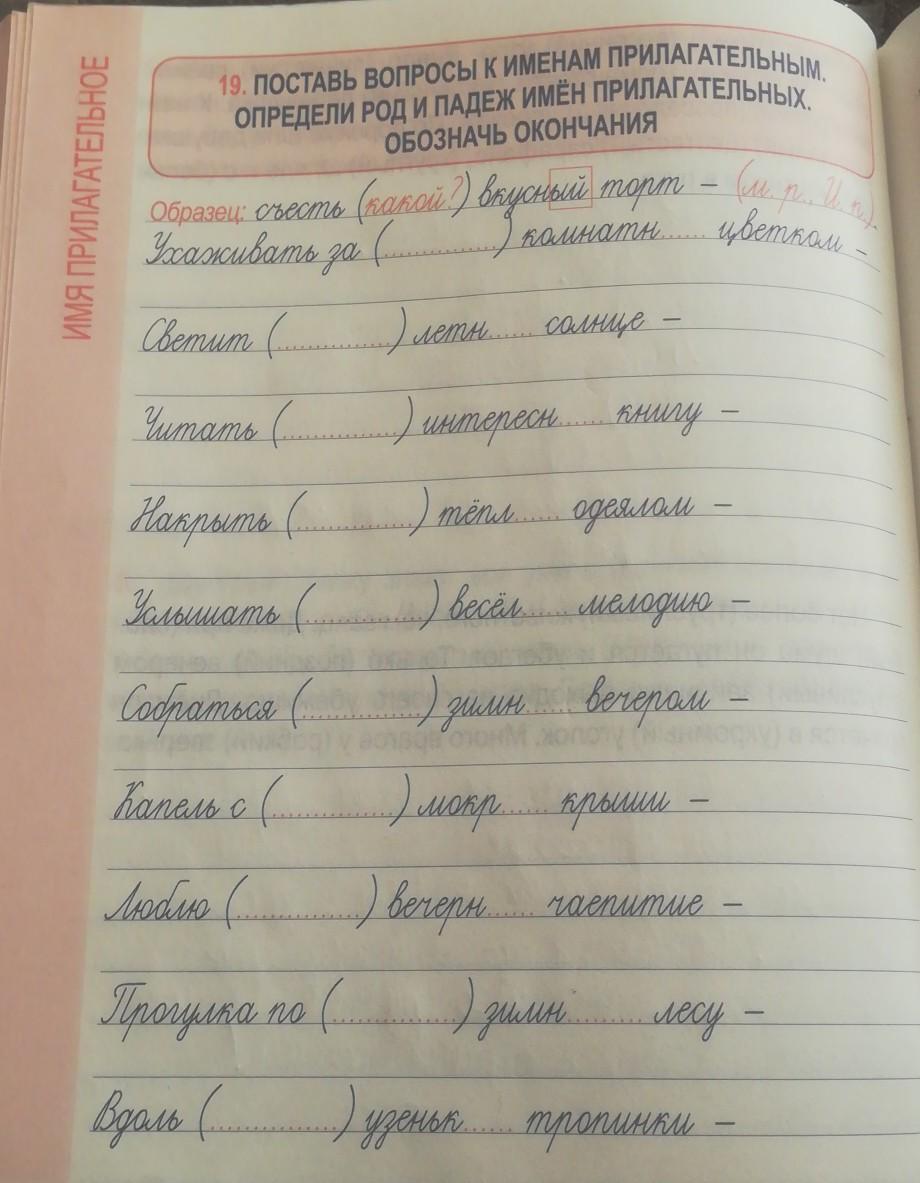 ИМЯ ПРИЛАГАТЕЛЬНОЕ
19. ПОСТАВЬ ВОПРОСЫ К ИМЕНАМ ПРИЛАГАТЕЛЬНЫМ.
ОПРЕДЕЛИ РОД И ПАДЕЖ ИМЁН ПРИЛАГАТЕЛЬНЫХ.
ОБОЗНАЧЬ ОКОНЧАНИЯ
Образец: съесть (какой?) вкусный торт – (м. р., И. п.)
Ухаживать за (..............) комнатн...... цветком –
Светит (..............) летн...... солнце –
Читать (..............) интересн...... книгу –
Накрыть (..............) тёпл...... одеялом –
Услышать (..............) весёл...... мелодию –
Собраться (..............) зимн...... вечером –
Капель с (..............) мокр...... крыши –
Люблю (..............) вечерн...... чаепитие –
Прогулка по (..............) зимн......... лесу –
Вдоль (..............) узеньк...... тропинки –